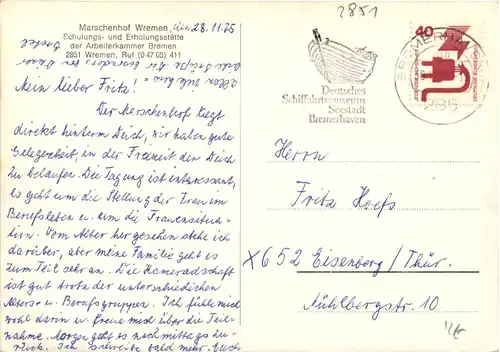 Marschenhof Wremen, den 28.11.75
Schulungs- und Erholungsstätte
der Arbeiterkammer Bremen
2851 Wremen, Ruf (0 47 05) 411
Mein lieber Fritz!
Der Marschenhof liegt
direkt hinterm Deich, wir haben gute
Gelegenheit, in der Freizeit den Deich
zu belaufen. Die Tagung ist interessant,
es geht um die Stellung der Frau im
Berufsleben u. um die Frauensitua-
tion. Vom Alter her gesehen stehe ich
darüber, aber meine Familie geht es
zum Teil sehr an. Die Kameradschaft
ist gut trotz der unterschiedlichen
Alters- u. Berufsgruppen. Ich fühle mich
wohl darin u. freue mich über die Teil-
nahme. Morgen geht es nachmittags zu-
rück. Ich schreibe bald mehr. Euch
2851
40
Deutsches
Schiffahrtsmuseum
Seestadt
Bremerhaven
BREMERHAVEN
285
Herrn
Fritz Hoefs
X 652 Eisenberg/Thür.
Mühlbergstr. 10